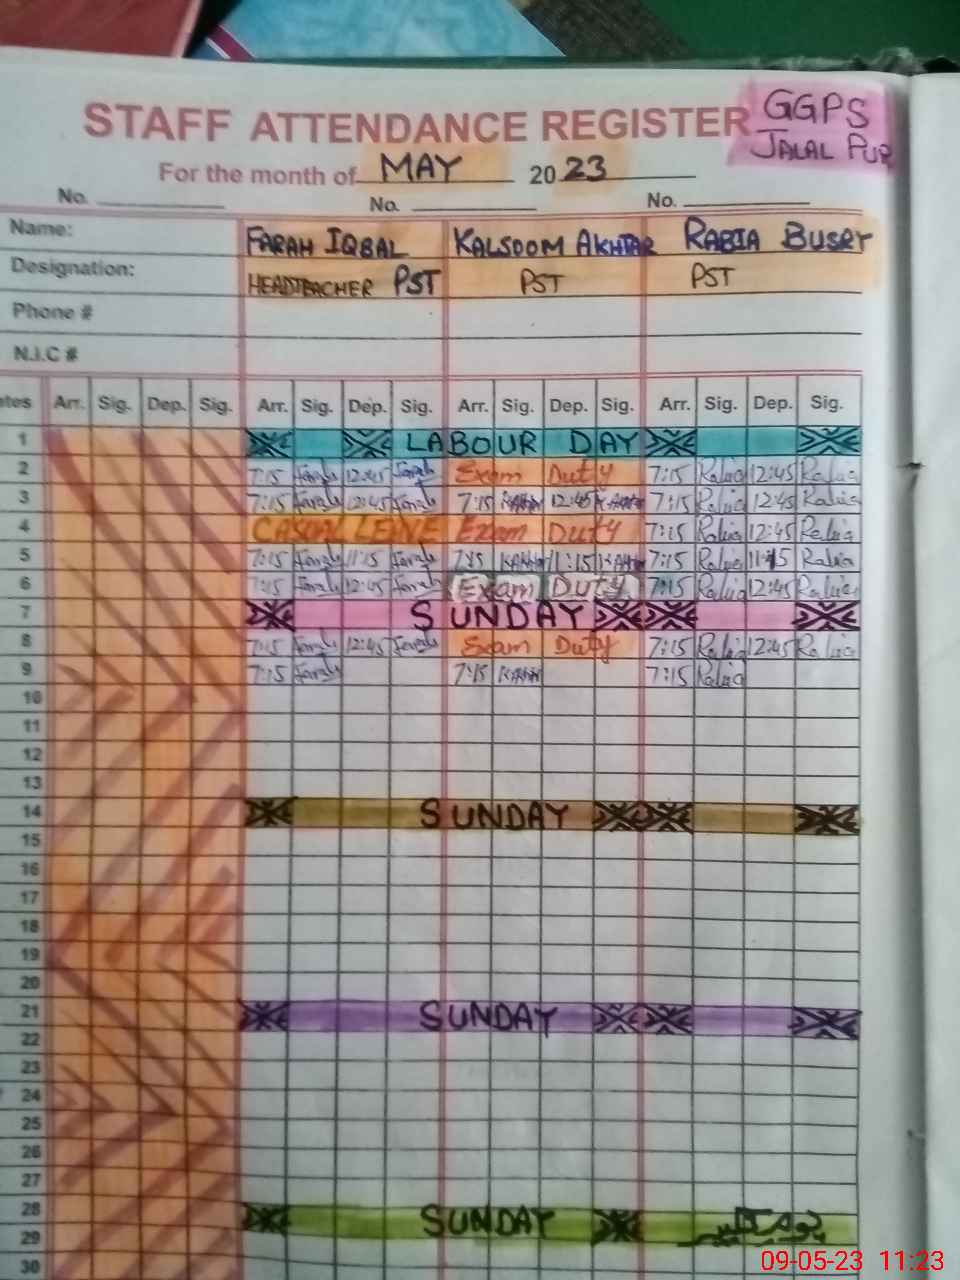 STAFF ATTENDANCE REGISTER GGPS
JALAL PUR
For the month of MAY 2023
No. No. No.
Name: FARAH IQBAL KALSOOM AKHTAR RABIA BUSRY
Designation: HEADTEACHER PST PST PST
Phone #
N.I.C #
ates Arr. Sig. Dep. Sig. Arr. Sig. Dep. Sig. Arr. Sig. Dep. Sig. Arr. Sig. Dep. Sig.
1 LABOUR DAY
2 7:15 Farah 12:45 Farah Exam Duty 7:15 Rabia 12:45 Rabia
3 7:15 Farah 12:45 Farah 7:15 KAkhtar 12:45 KAkhtar 7:15 Rabia 12:45 Rabia
4 CASUAL LEAVE Exam Duty 7:15 Rabia 12:45 Rabia
5 7:15 Farah 11:15 Farah 7:15 KAkhtar 11:15 KAkhtar 7:15 Rabia 11:15 Rabia
6 7:15 Farah 12:45 Farah Exam Duty 7:15 Rabia 12:45 Rabia
7 SUNDAY
8 7:15 Farah 12:45 Farah Exam Duty 7:15 Rabia 12:45 Rabia
9 7:15 Farah 7:15 KAkhtar 7:15 Rabia
10
11
12
13
14 SUNDAY
15
16
17
18
19
20
21 SUNDAY
22
23
24
25
26
27
28 SUNDAY
29
30
09-05-23 11:23